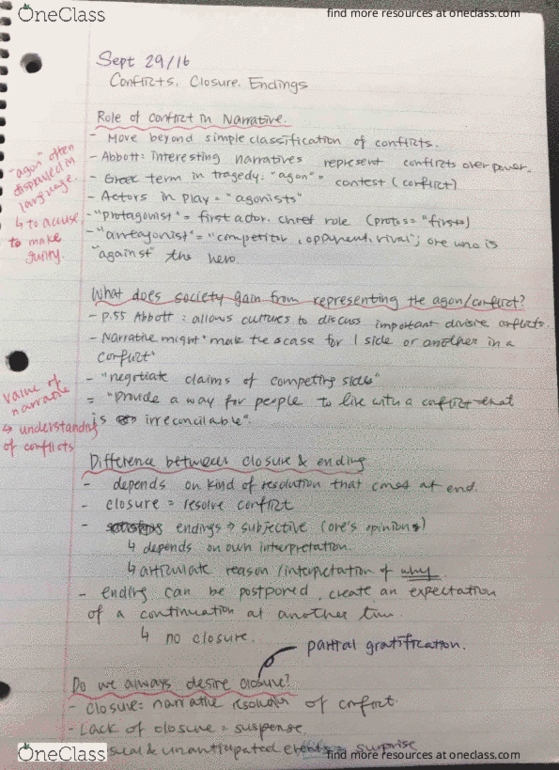 OneClass
find more resources at oneclass.com
Sept 29/16
Conflicts, Closure, Endings
Role of conflict in Narrative.
- Move beyond simple classification of conflicts.
- Abbott: interesting narratives represent conflicts over power.
- Greek term in tragedy: "agon" = contest (conflict)
- Actors in play = "agonists"
- "protagonist" = first actor, chief role (protos = "first")
- "antagonist" = "competitor, opponent, rival"; one who is
"against" the hero.
"agon" often
displayed in
language.
↳ to accuse
to make
guilty.
What does society gain from representing the agon/conflict?
- p.55 Abbott: allows cultures to discuss important divisive conflicts.
- Narrative might "make the case for 1 side or another in a
conflict"
- "negotiate claims of competing sides"
= "Provide a way for people to live with a conflict that
is irreconcilable".
value of
narrative
↳ understanding
of conflicts
Difference between closure & ending
- depends on kind of resolution that comes at end.
- closure = resolve conflict
- endings → subjective (one's opinions)
↳ depends on own interpretation.
↳ articulate reason/interpretation of why
- ending can be postponed, create an expectation
of a continuation at another time.
↳ no closure.
partial gratification.
Do we always desire closure?
- closure: narrative resolution of conflict
- Lack of closure = suspense.
& unanticipated events = surprise
OneClass
find more resources at oneclass.com